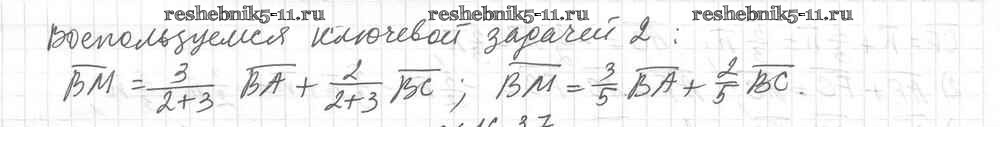 reshebnik5-11.ru reshebnik5-11.ru reshebnik5-11.ru
Воспользуемся ключевой задачей 2 :
BM = 3/(2+3) BA + 2/(2+3) BC ; BM = 3/5 BA + 2/5 BC .